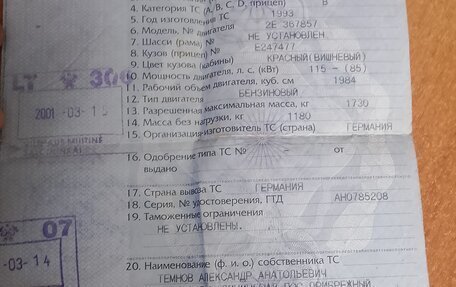 4. Категория ТС (А, В, С, D, прицеп) В
5. Год изготовления ТС 1993
6. Модель, № двигателя 2Е 367857
7. Шасси (рама) № НЕ УСТАНОВЛЕН
8. Кузов (прицеп) № Е247477
9. Цвет кузова (кабины) КРАСНЫЙ(ВИШНЕВЫЙ)
10. Мощность двигателя, л. с. (кВт) 115 - (85)
11. Рабочий объем двигателя, куб. см 1984
12. Тип двигателя БЕНЗИНОВЫЙ
13. Разрешенная максимальная масса, кг 1730
14. Масса без нагрузки, кг 1180
15. Организация-изготовитель ТС (страна) ГЕРМАНИЯ
16. Одобрение типа ТС № - от
выдано
17. Страна вывоза ТС ГЕРМАНИЯ
18. Серия, № удостоверения, ГТД АН0785208
19. Таможенные ограничения
НЕ УСТАНОВЛЕНЫ.
20. Наименование (ф. и. о.) собственника ТС
ТЕМНОВ АЛЕКСАНДР АНАТОЛЬЕВИЧ
ПОС. ПРИБРЕЖНЫЙ
LT
2001 -03- 1
07
-03- 14